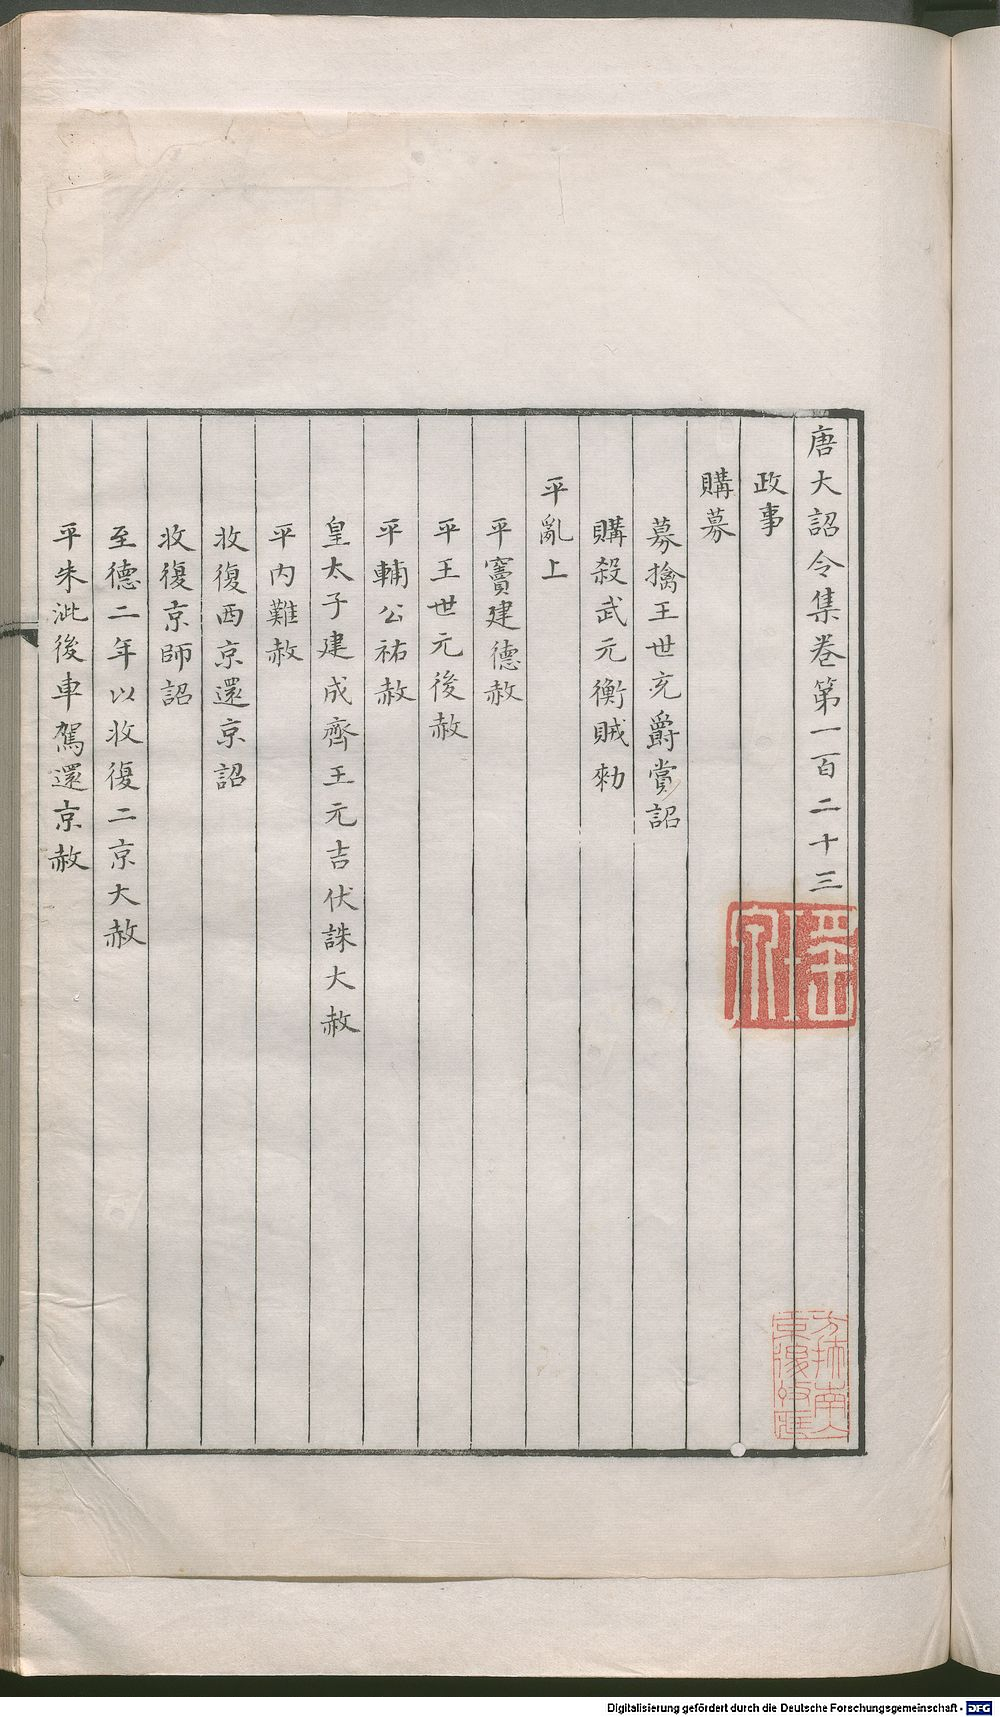 唐大詔令集卷第一百二十三
政事
購募
募擒王世充爵賞詔
購殺武元衡賊勑
平亂上
平竇建德赦
平王世充後赦
平輔公祐赦
皇太子建成齊王元吉伏誅大赦
平內難赦
收復西京還京詔
收復京師詔
至德二年以收復二京大赦
平朱泚後車駕還京赦
Digitalisierung gefördert durch die Deutsche Forschungsgemeinschaft - DFG